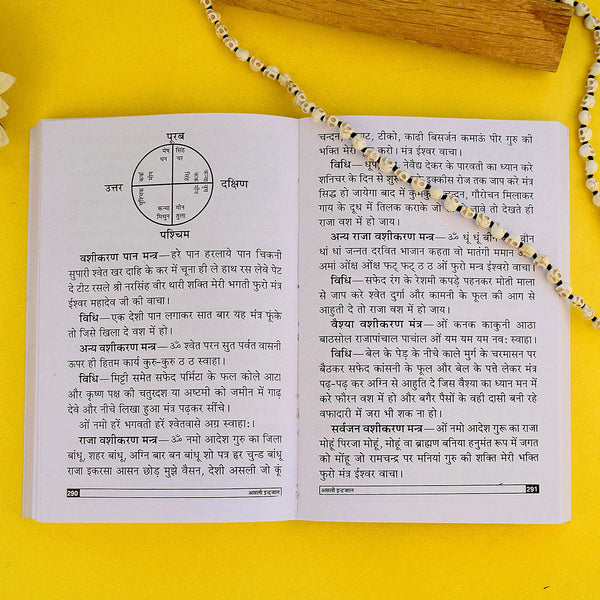 पूरब
उत्तर
दक्षिण
पश्चिम
मेष सिंह
धन
कन्या मीन
मिथुन तुला
वशीकरण पान मन्त्र—हरे पान हरलाये पान चिकनी
सुपारी श्वेत खर दाहि के कर में चूना ही ले हाथ रस लेवे पेट
दे टोट रसले श्री नरसिंह वीर थारी शक्ति मेरी भगती फुरो मन्त्र
ईश्वर महादेव जी की वाचा।
विधि—एक देशी पान लगाकर सात बार यह मंत्र फूंके
तो जिसे खिला दे वश में हो।
अन्य वशीकरण मन्त्र—ॐ श्वेत परन सुत पर्वत वासनी
ऊपर ही हितम कार्य कुरू-कुरु ठ ठ स्वाहा।
विधि—मिट्टी समेत सफेद पर्मिटा के फल कोले आटा
और कृष्ण पक्ष की चतुरदश या अष्टमी को जमीन में गाढ़
देवे और नीचे लिखा हुआ मंत्र पढ़कर सींचे।
ओं नमो हरें भगवती हरें श्वेतवासे अग्र स्वाहाः।
राजा वशीकरण मन्त्र—ॐ नमो आदेश गुरु का जिला
बांधू, शहर बांधू, अग्नि बार बन बांधू शो पत्र हर चुन्ड बांधू
राजा इकरसा आसन छोड़ मुझे वैसन, देशी असली जो कूं
290
असली इन्द्रजाल
चन्दन, टीको, काढी बिसर्जन कमाऊं पीर गुरु की
भक्ति मेरी करो। मंत्र ईश्वर वाचा।
विधि—धूप नेवैद्य देकर के पारवती का ध्यान करे
शनिचर के दिन से शुरु इक्कीस रोज तक जाप करे मंत्र
सिद्ध हो जायेगा बाद में चन्दन, गौरोचन मिलाकर
गाय के दूध में तिलक कराके जावे तो देखते ही
राजा वश में हो जाय।
अन्य राजा वशीकरण मन्त्र—ॐ धूं धूं धीन
धां धां जन्नत दरवित भाजन कहता वो मातंगी ममान
अमां ओंख ओंख फट् फट् ठ ठ ओं फुरो मन्त्र ईश्वरो वाचा।
विधि—सफेद रंग के रेशमी कपड़े पहनकर मोती माला
से जाप करे श्वेत दुर्गा और कामनी के फूल की आग से
आहुती दे तो राजा वश में हो जाय।
वैश्या वशीकरण मंत्र—ओं कनक काकुनी आठा
बाठसोल राजापांचाल पाचांल ओं यम यम यम नवः स्वाहा।
विधि—बेल के पेड़ के नीचे काले मुर्ग के चरमासन पर
बैठकर सफेद कांसनी के फूल और बेल के पत्ते लेकर मंत्र
पढ़-पढ़ कर अग्नि से आहुति दे जिस वैश्या का ध्यान मन में
करे फौरन वश में हो और बगैर पैसों के वही दासी बनी रहे
वफादारी में जरा भी शक ना हो।
सर्वजन वशीकरण मन्त्र—ओं नमो आदेश गुरू का राजा
मोहूं पिरजा मोहूं, मोहूं वा ब्राह्मण बनिया हनुमंत रूप में जगत
को मोंहू जो रामचन्द्र पर मनियां गुरु की शक्ति मेरी भक्ति
फुरो मंत्र ईश्वर वाचा।
असली इन्द्रजाल
291